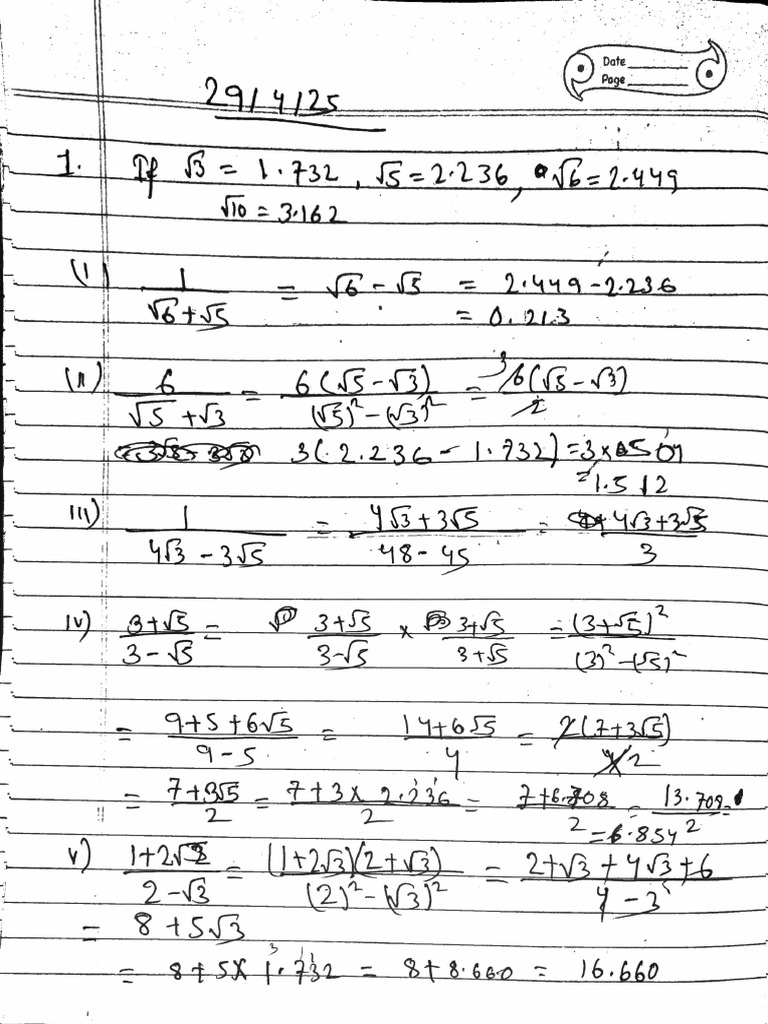 Date
Page
29/4/25
1. If √3 = 1.732, √5 = 2.236, √6 = 2.449
√10 = 3.162
(i) 1/(√6+√5) = √6 - √5 = 2.449 - 2.236
= 0.213
(ii) 6/(√5+√3) = 6(√5-√3)/((√5)²-(√3)²) = 3 6(√5-√3)/2
3(2.236 - 1.732) = 3 × 504
= 1.512
iii) 1/(4√3-3√5) = (4√3+3√5)/(48-45) = (4√3+3√5)/3
iv) (3+√5)/(3-√5) = (3+√5)/(3-√5) × (3+√5)/(3+√5) = (3+√5)²/((3)²-(√5)²)
= (9+5+6√5)/(9-5) = (14+6√5)/4 = 2(7+3√5)/4 2
= (7+3√5)/2 = (7+3×2.236)/2 = (7+6.708)/2 = 13.708/2
= 6.854
v) (1+2√3)/(2-√3) = (1+2√3)(2+√3)/((2)²-(√3)²) = (2+√3+4√3+6)/(4-3)
= 8+5√3
= 8+5×1.732 = 8+8.660 = 16.660